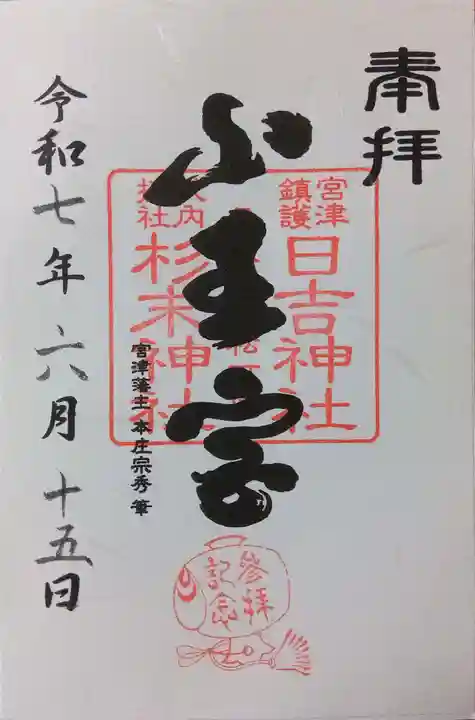 奉拝
宮津
鎮護
日吉神社
山王宮
杉末神社
宮津藩主 本庄宗秀 筆
令和七年 六月 十五日
参拝
記念